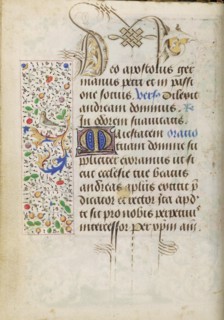 Deo apostolus ger
manus petri et in passi
one socius. Vers Dilexit
andream dominus. R
In odorem suauitatis.
Maiestatem oratio
tuam domine sup
pliciter exoramus ut si
cut ecclesie tue beatus
andreas aplus extitit p
dicator et rector ita apd
te sit pro nobis perpetuus
intercessor per xpm am